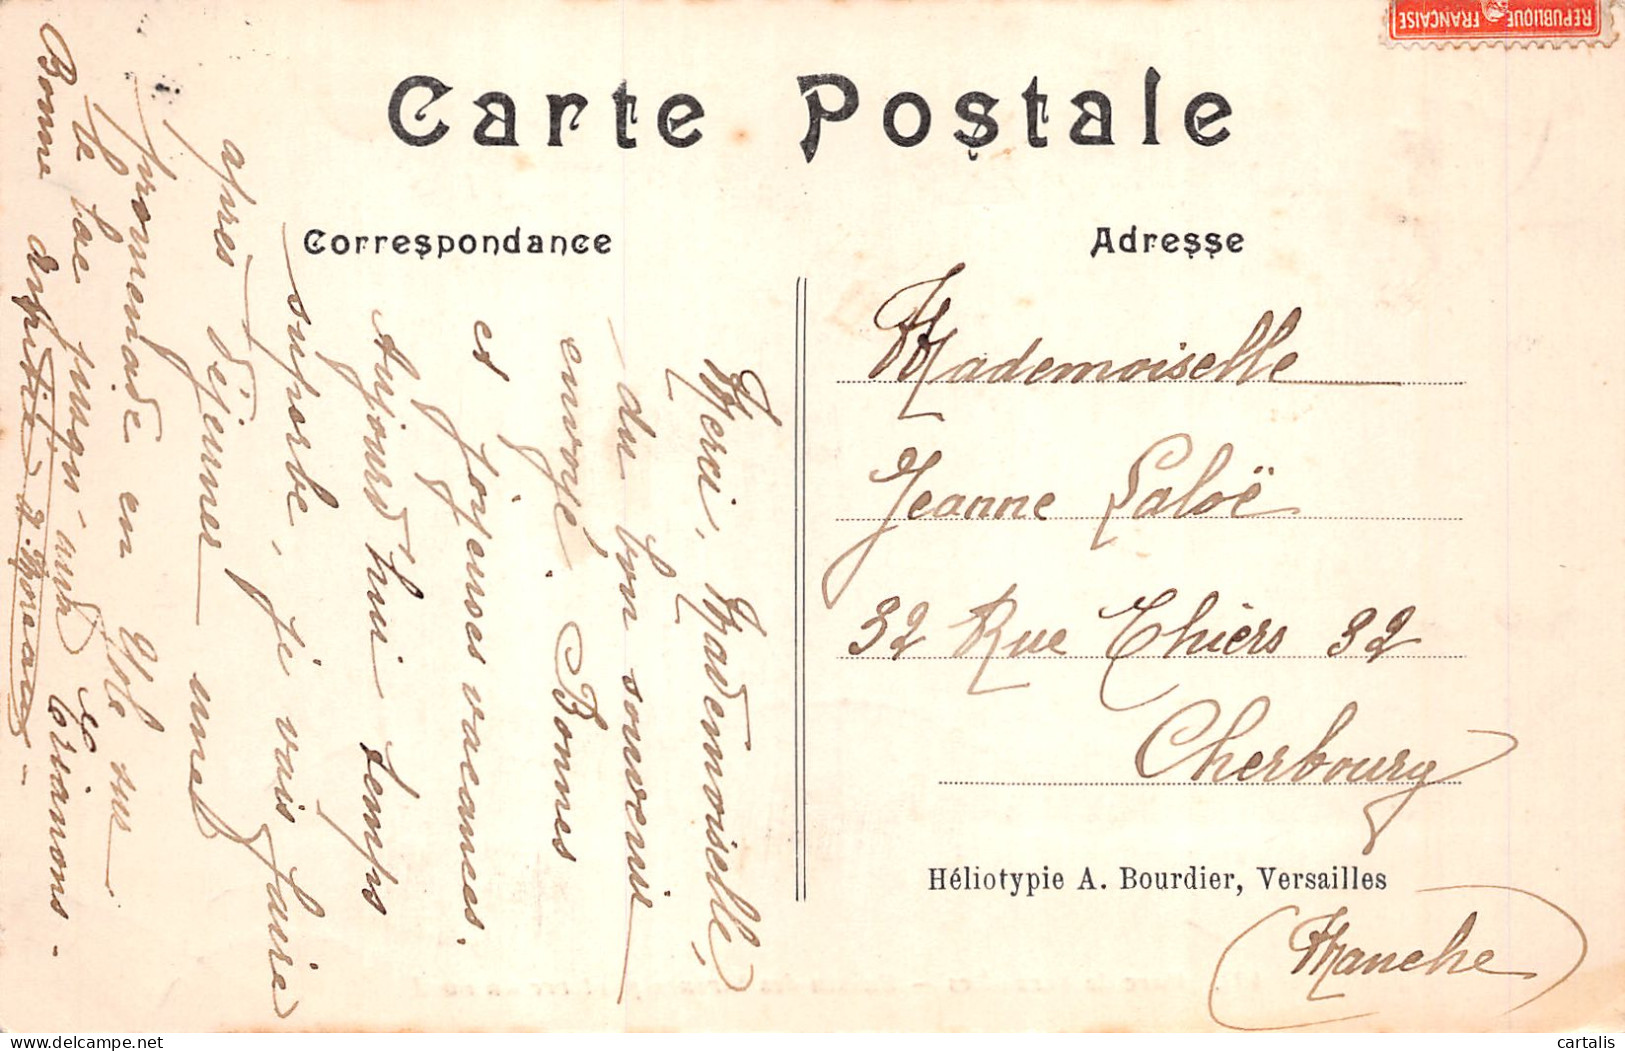 REPUBLIQUE FRANÇAISE
Carte Postale
Correspondance
Adresse
Merci, Mademoiselle,
du bon souvenir
envoyé. Bonnes
et joyeuses vacances.
Aujourd'hui temps
superbe, je vais faire
après déjeuner une
promenade en Yole sur
le lac jusqu'aux
Trianons -
Bonne amitié J. Moreau -
Mademoiselle
Jeanne Laloë
32 Rue Thiers 32
Cherbourg
(Manche)
Héliotypie A. Bourdier, Versailles
cartalis
delcampe.net